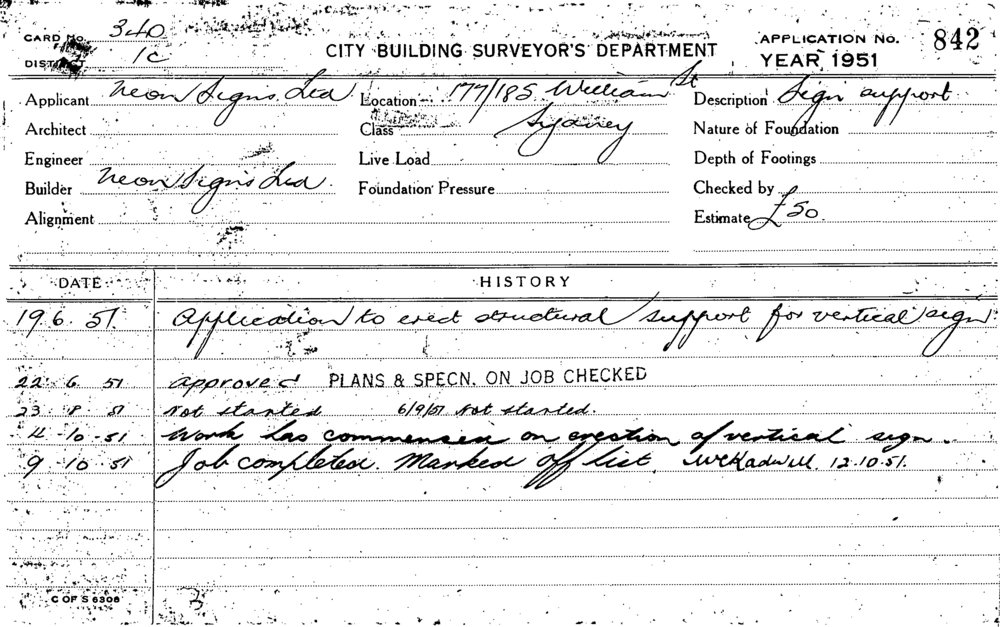 CARD No. 340
DISTRICT 1C
CITY BUILDING SURVEYOR'S DEPARTMENT
APPLICATION No. 842
YEAR 1951
Applicant Neon Signs Ltd Location 177/185 William St Description Sign support
Architect Class Sydney Nature of Foundation
Engineer Live Load Depth of Footings
Builder Neon Signs Ltd. Foundation Pressure Checked by
Alignment Estimate £50.
DATE HISTORY
19 6. 51. Application to erect structural support for vertical sign
22 6 51 approved PLANS & SPECN. ON JOB CHECKED
23 8 51 Not started 6/9/51 Not started.
4-10-51 Work has commenced on erection of vertical sign.
9-10-51 Job completed. Marked off list. 12.10.51.
C OF S 6306